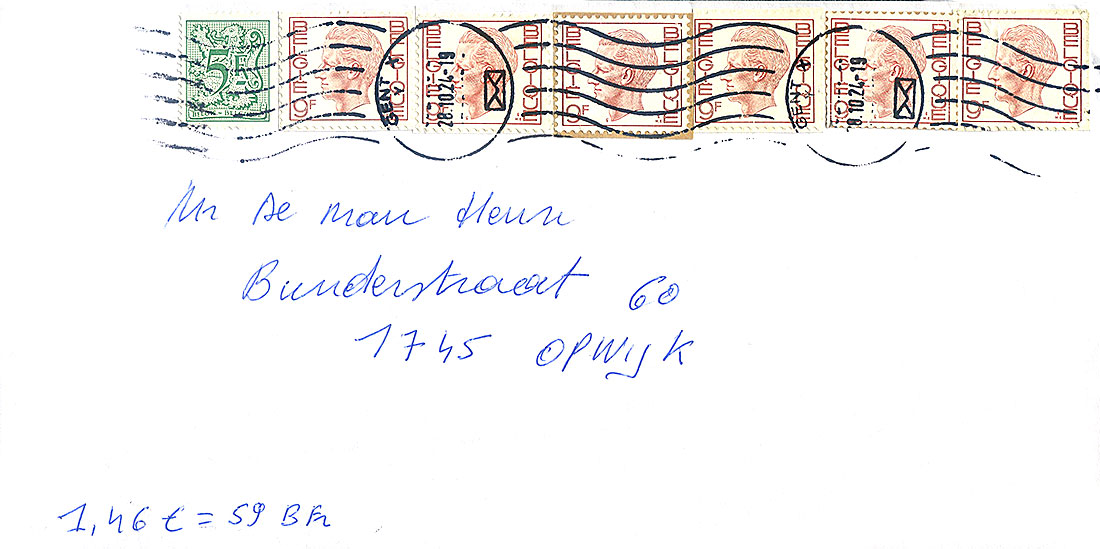 5F
BELGIE-BELGIQUE
BELGIE-BELGIQUE 9F
GENT X
28.10.24-19
GENT X
28.10.24-19
Mr De Man Henri
Bunderstraat 60
1745 OPWIJK
1,46 € = 59 BFr